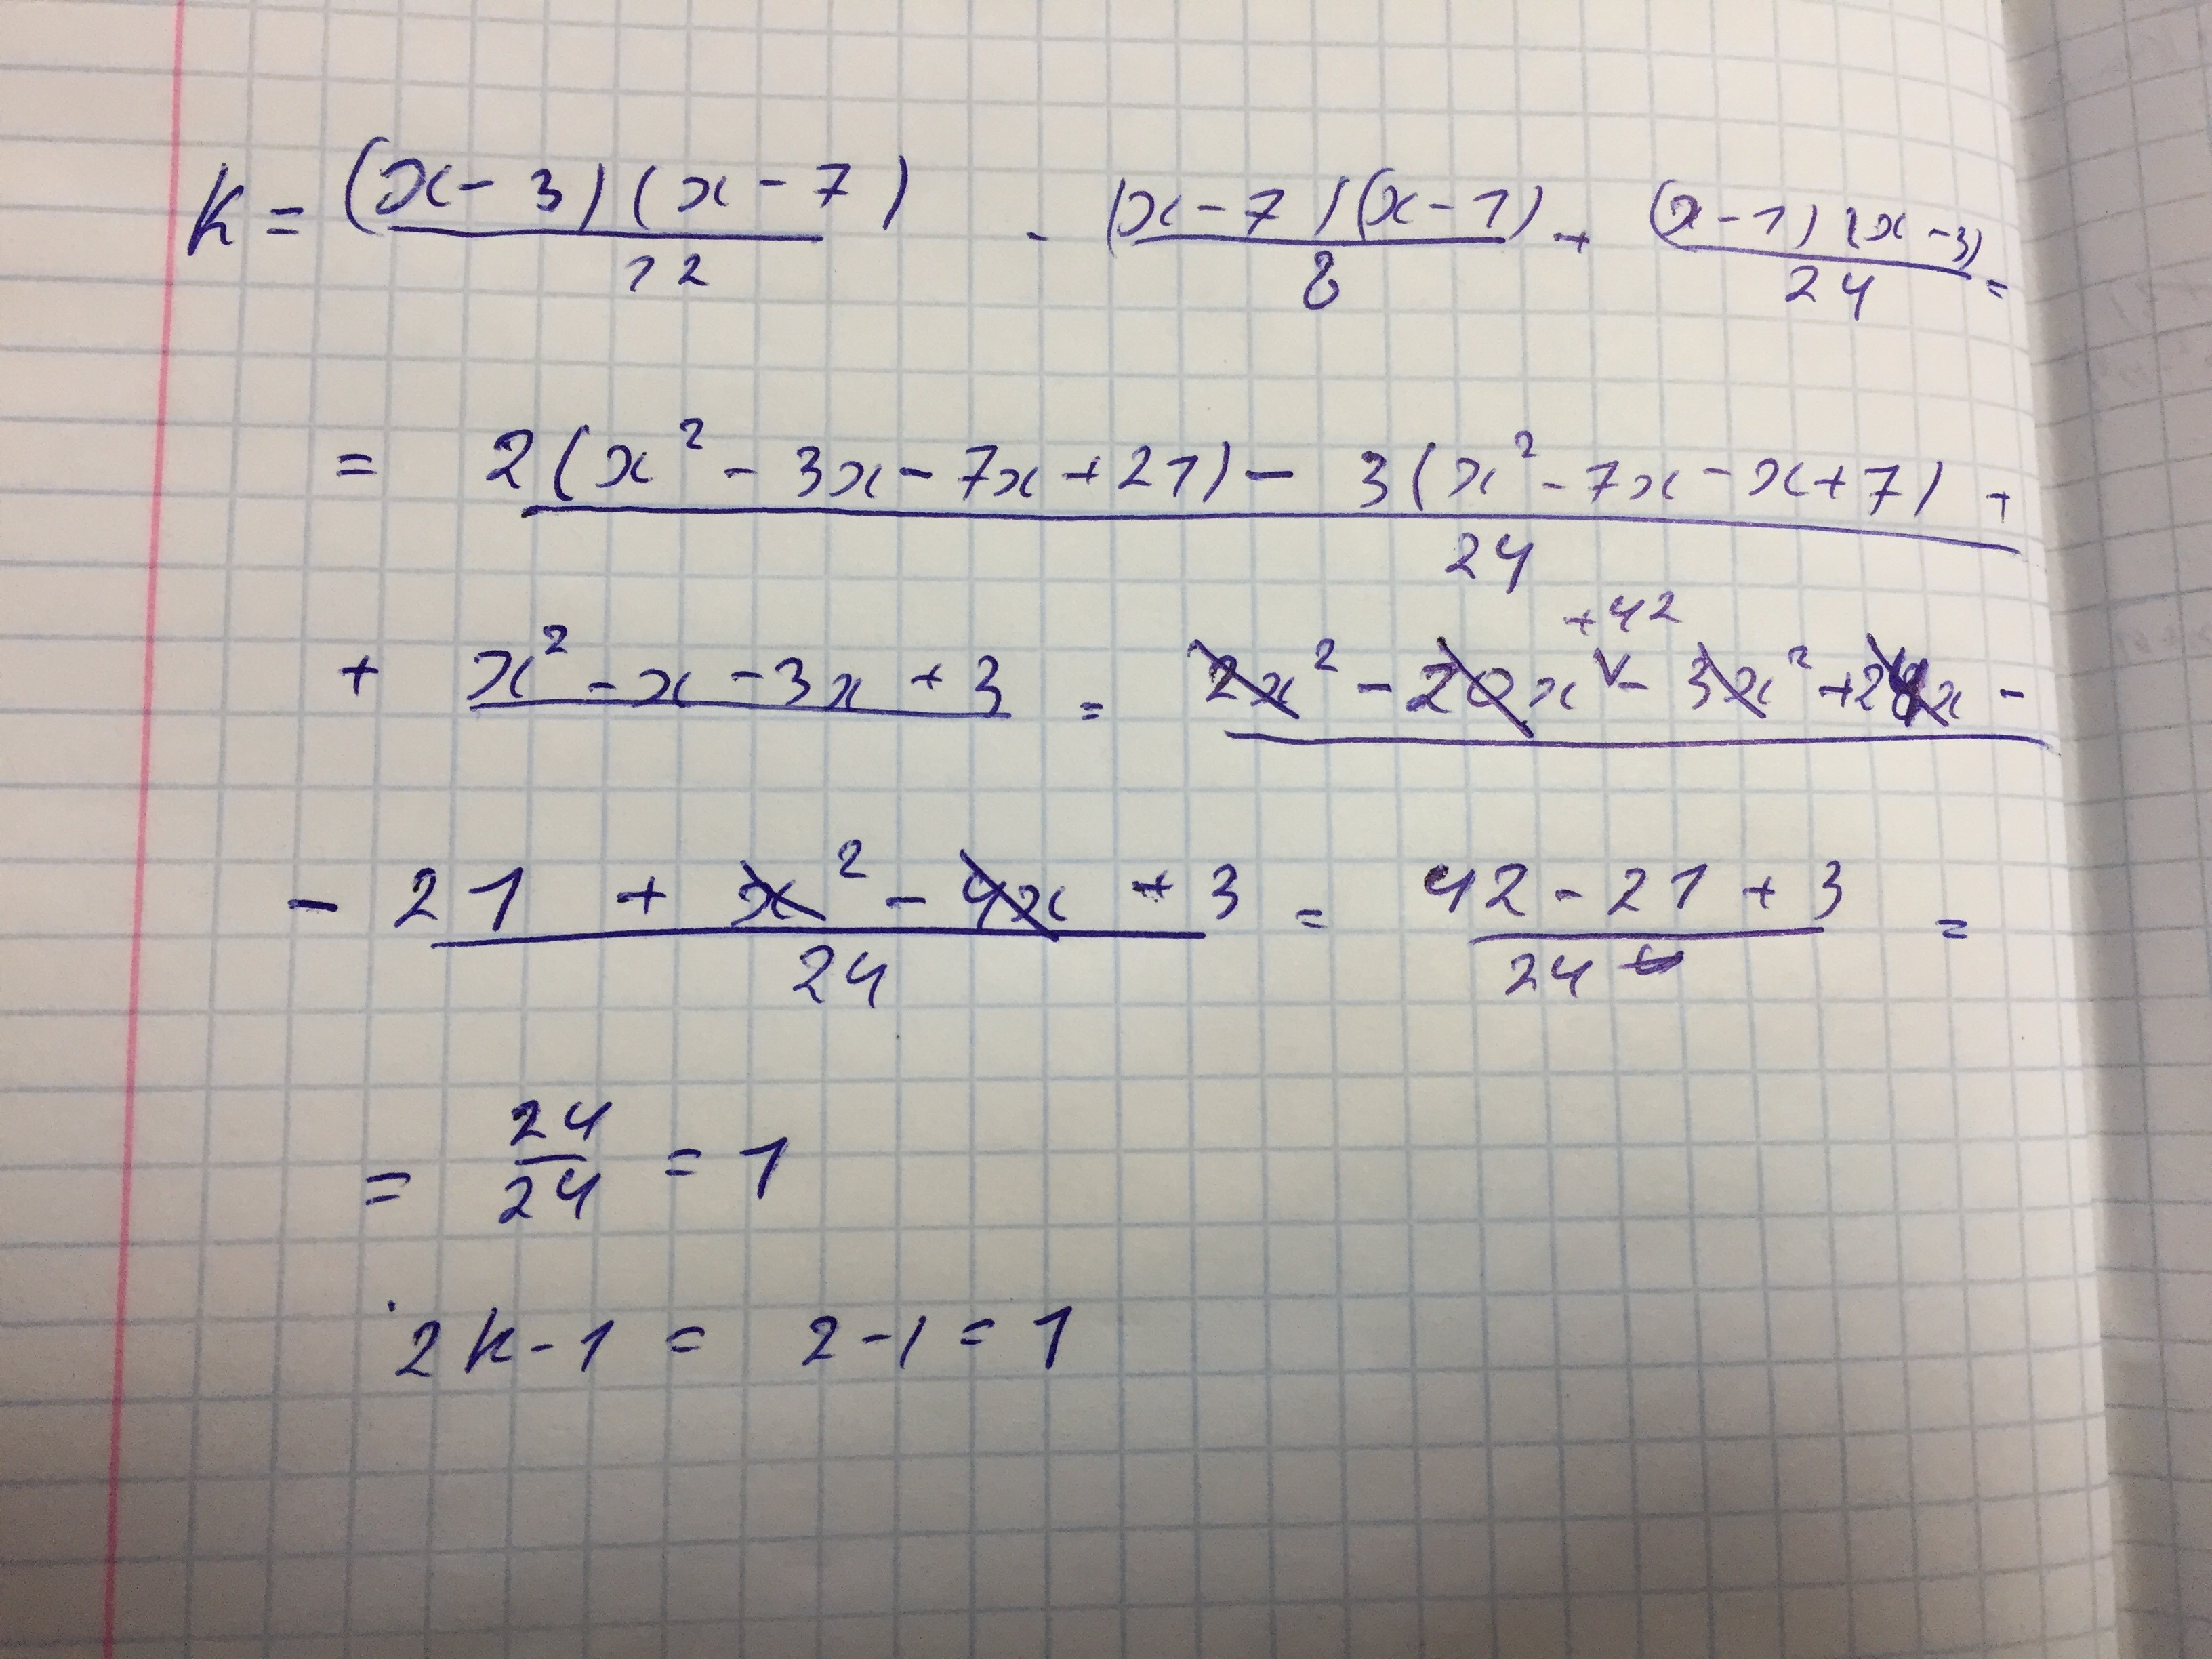 K = (x-3)(x-7)/12 - (x-7)(x-1)/8 + (x-1)(x-3)/24 =
= 2(x² - 3x - 7x + 21) - 3(x² - 7x - x + 7) +/24
+ x² - x - 3x + 3 = 2x² - 20x +42 - 3x² + 24x -
- 21 + x² - 4x + 3/24 = 42 - 21 + 3/24 =
= 24/24 = 1
2K - 1 = 2 - 1 = 1